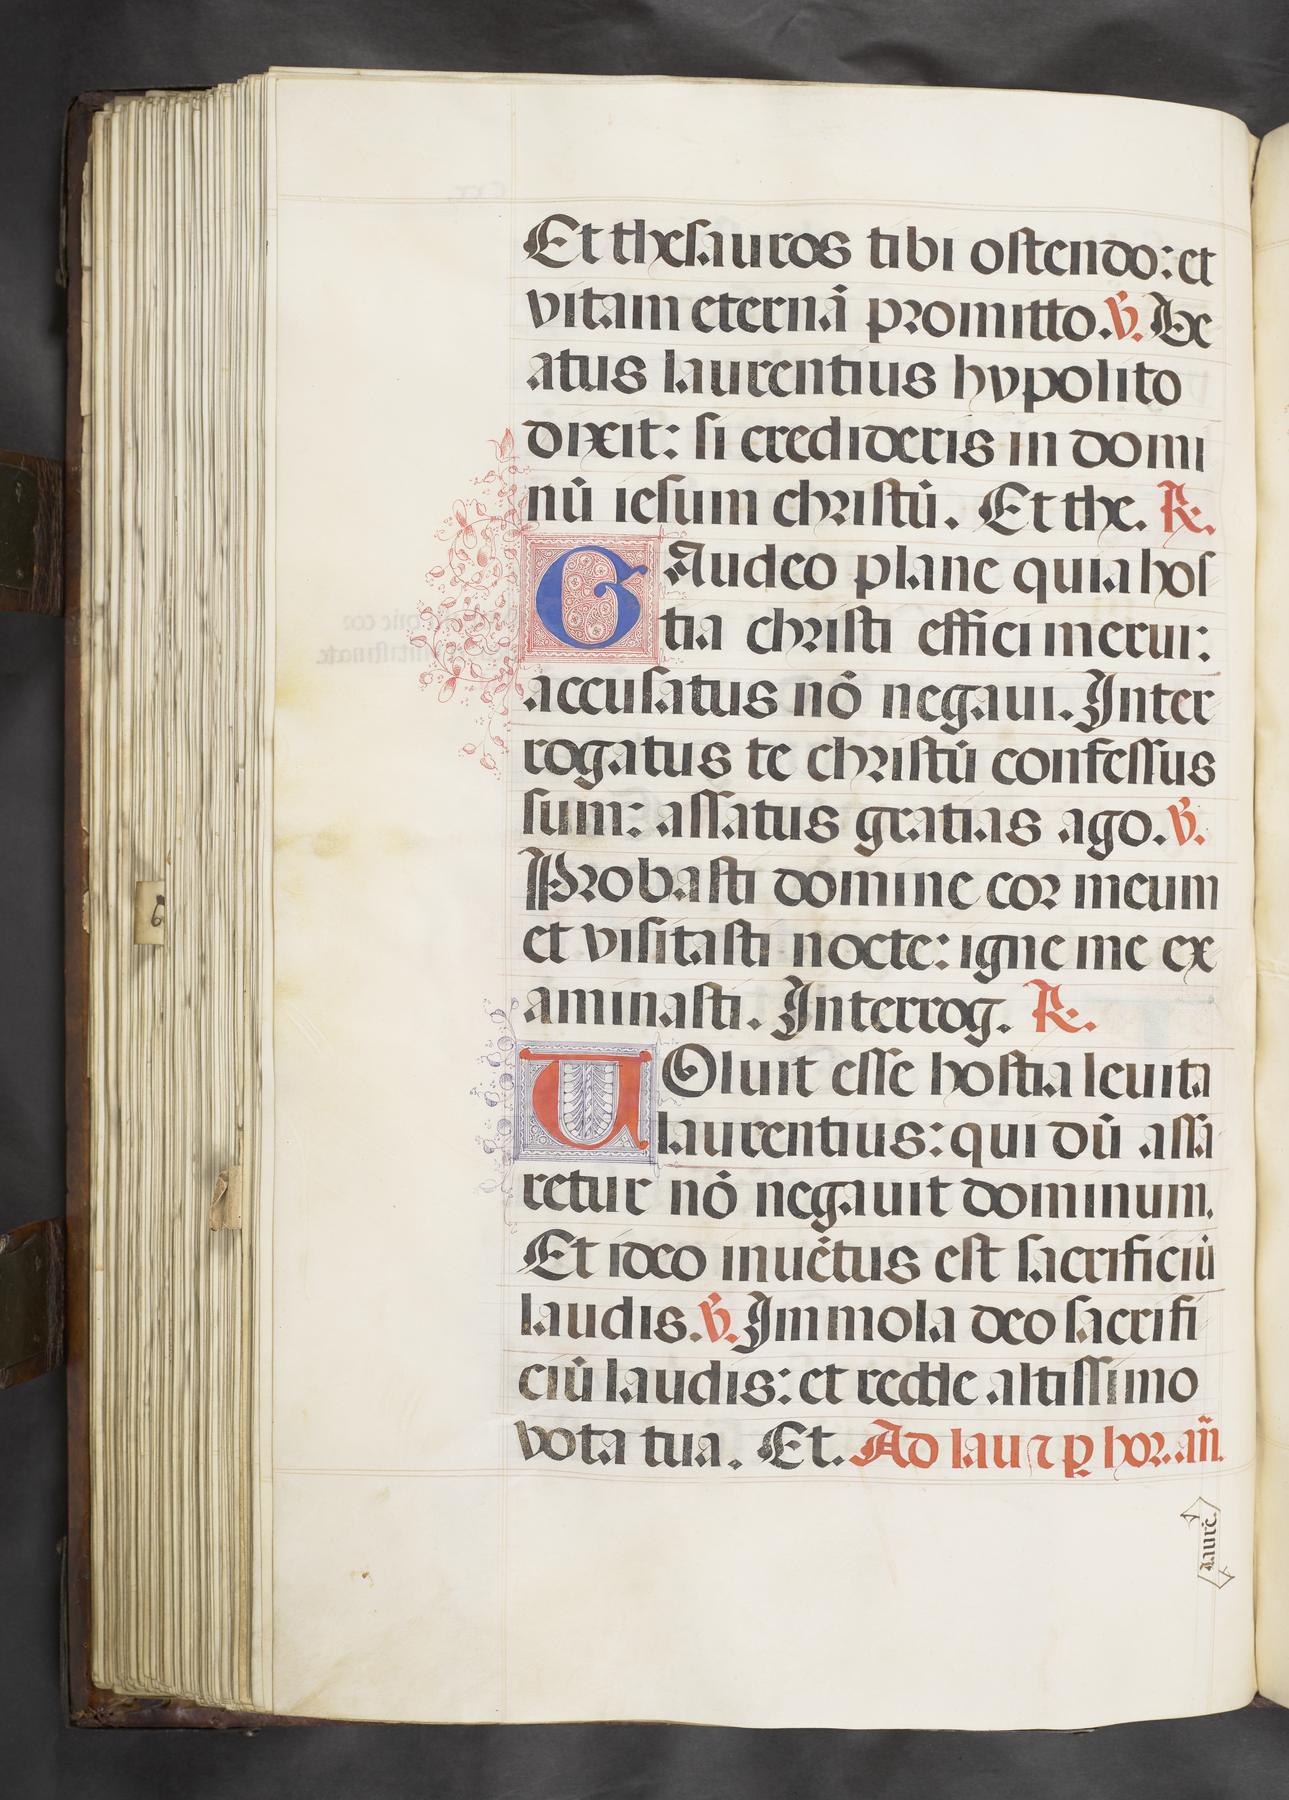 Et thesauros tibi ostendo: et
vitam eternā promitto. ℣. Be
atus laurentius hypolito
dixit: si credideris in domi
nū iesum christū. Et the. ℟.
GAudeo plane quia hos
tia christi effici merui:
accusatus nō negaui. Inter
rogatus te christū confessus
sum: assatus gratias ago. ℣.
Probasti domine cor meum
et visitasti nocte: igne me ex
aminasti. Interrog. ℟.
UOluit esse hostia leuita
laurentius: qui dū assa
retur nō negauit dominum.
Et ideo inuētus est sacrificiū
laudis. ℣. Immola deo sacrifi
ciū laudis: et redde altissimo
vota tua. Et. Ad lau ⁊ ꝑ hor. añ.
Laurē.